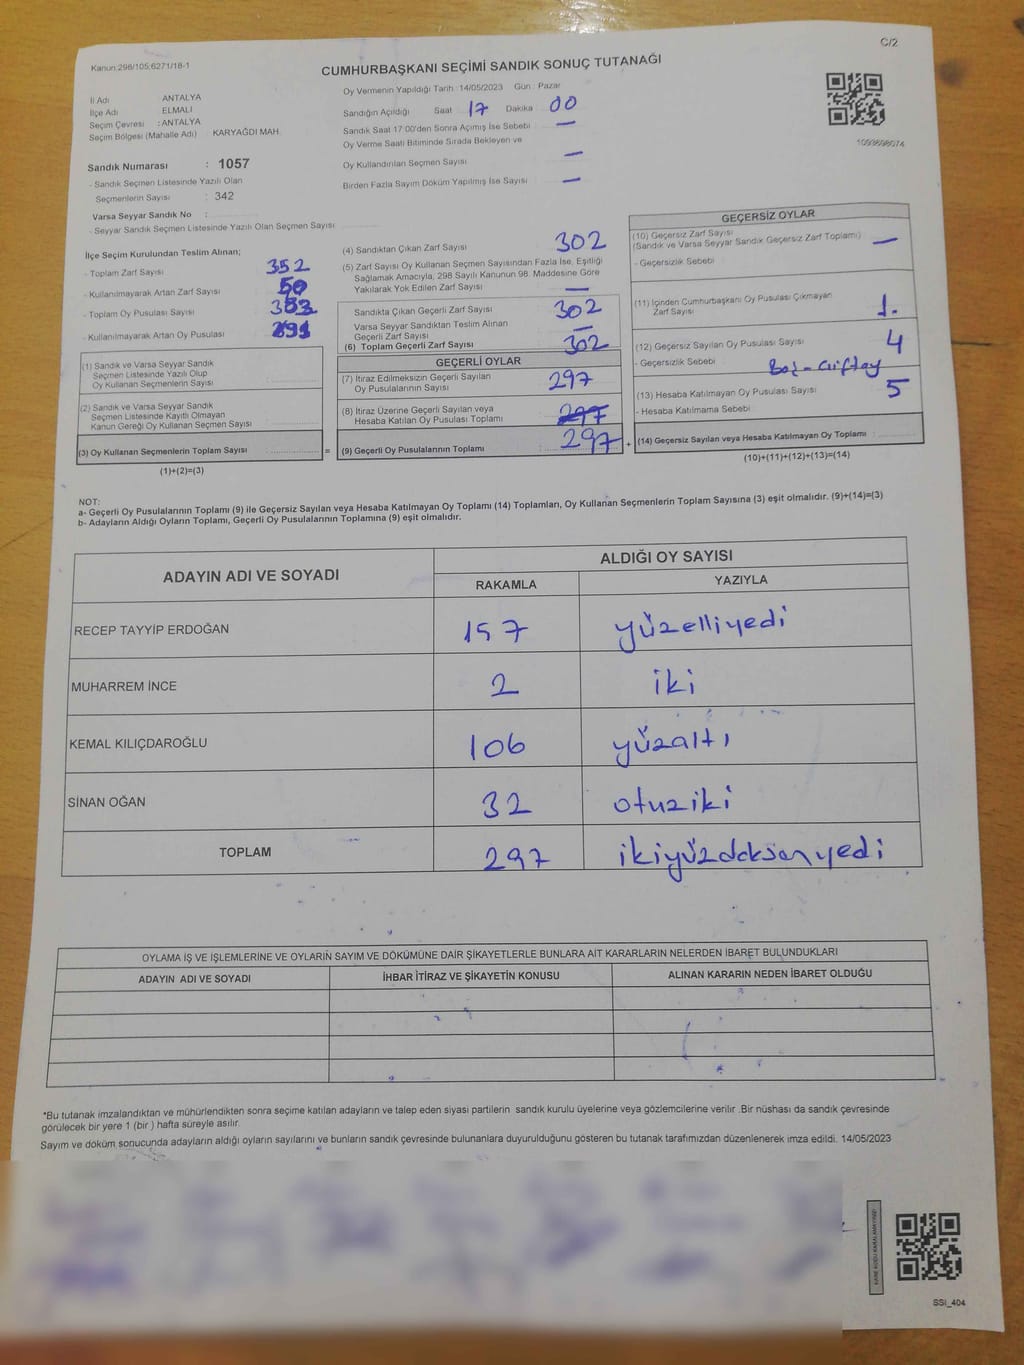 C/2
Kanun:298/105;6271/18-1
CUMHURBAŞKANI SEÇİMİ SANDIK SONUÇ TUTANAĞI
İl Adı ANTALYA
İlçe Adı ELMALI
Seçim Çevresi : ANTALYA
Seçim Bölgesi (Mahalle Adı) : KARYAĞDI MAH.
Sandık Numarası : 1057
- Sandık Seçmen Listesinde Yazılı Olan
Seçmenlerin Sayısı : 342
Varsa Seyyar Sandık No :
- Seyyar Sandık Seçmen Listesinde Yazılı Olan Seçmen Sayısı :
Oy Vermenin Yapıldığı Tarih : 14/05/2023 Gün : Pazar
Sandığın Açıldığı Saat 17 Dakika 00
Sandık Saat 17:00'den Sonra Açımış İse Sebebi —
Oy Verme Saati Bitiminde Sırada Bekleyen ve
Oy Kullandırılan Seçmen Sayısı —
Birden Fazla Sayım Döküm Yapılmış İse Sayısı —
1093698074
İlçe Seçim Kurulundan Teslim Alınan;
- Toplam Zarf Sayısı 352
- Kullanılmayarak Artan Zarf Sayısı 50
- Toplam Oy Pusulası Sayısı
- Kullanılmayarak Artan Oy Pusulası
(1) Sandık ve Varsa Seyyar Sandık
Seçmen Listesinde Yazılı Olup
Oy Kullanan Seçmenlerin Sayısı :
(2) Sandık ve Varsa Seyyar Sandık
Seçmen Listesinde Kayıtlı Olmayan
Kanun Gereği Oy Kullanan Seçmen Sayısı :
(3) Oy Kullanan Seçmenlerin Toplam Sayısı : =
(1)+(2)=(3)
(4) Sandıktan Çıkan Zarf Sayısı 302
(5) Zarf Sayısı Oy Kullanan Seçmen Sayısından Fazla İse, Eşitliği
Sağlamak Amacıyla, 298 Sayılı Kanunun 98. Maddesine Göre
Yakılarak Yok Edilen Zarf Sayısı —
Sandıkta Çıkan Geçerli Zarf Sayısı 302
Varsa Seyyar Sandıktan Teslim Alınan
Geçerli Zarf Sayısı —
(6) Toplam Geçerli Zarf Sayısı 302
GEÇERLİ OYLAR
(7) İtiraz Edilmeksizin Geçerli Sayılan
Oy Pusulalarının Sayısı 297
(8) İtiraz Üzerine Geçerli Sayılan veya
Hesaba Katılan Oy Pusulası Toplamı 297
(9) Geçerli Oy Pusulalarının Toplamı 297 +
GEÇERSİZ OYLAR
(10) Geçersiz Zarf Sayısı
(Sandık ve Varsa Seyyar Sandık Geçersiz Zarf Toplamı) —
- Geçersizlik Sebebi
(11) İçinden Cumhurbaşkanı Oy Pusulası Çıkmayan
Zarf Sayısı 1.
(12) Geçersiz Sayılan Oy Pusulası Sayısı 4
- Geçersizlik Sebebi
(13) Hesaba Katılmayan Oy Pusulası Sayısı 5
- Hesaba Katılmama Sebebi
(14) Geçersiz Sayılan veya Hesaba Katılmayan Oy Toplamı :
(10)+(11)+(12)+(13)=(14)
NOT:
a- Geçerli Oy Pusulalarının Toplamı (9) ile Geçersiz Sayılan veya Hesaba Katılmayan Oy Toplamı (14) Toplamları, Oy Kullanan Seçmenlerin Toplam Sayısına (3) eşit olmalıdır. (9)+(14)=(3)
b- Adayların Aldığı Oyların Toplamı, Geçerli Oy Pusulalarının Toplamına (9) eşit olmalıdır.
ADAYIN ADI VE SOYADI ALDIĞI OY SAYISI
RAKAMLA YAZIYLA
RECEP TAYYİP ERDOĞAN 157 yüzelliyedi
MUHARREM İNCE 2 iki
KEMAL KILIÇDAROĞLU 106 yüzaltı
SİNAN OĞAN 32 otuziki
TOPLAM 297 ikiyüzdoksanyedi
OYLAMA İŞ VE İŞLEMLERİNE VE OYLARIN SAYIM VE DÖKÜMÜNE DAİR ŞİKAYETLERLE BUNLARA AİT KARARLARIN NELERDEN İBARET BULUNDUKLARI
ADAYIN ADI VE SOYADI İHBAR İTİRAZ VE ŞİKAYETİN KONUSU ALINAN KARARIN NEDEN İBARET OLDUĞU
*Bu tutanak imzalandıktan ve mühürlendikten sonra seçime katılan adayların ve talep eden siyasi partilerin sandık kurulu üyelerine veya gözlemcilerine verilir .Bir nüshası da sandık çevresinde
görülecek bir yere 1 (bir ) hafta süreyle asılır.
Sayım ve döküm sonucunda adayların aldığı oyların sayılarını ve bunların sandık çevresinde bulunanlara duyurulduğunu gösteren bu tutanak tarafımızdan düzenlenerek imza edildi. 14/05/2023
SSİ_404